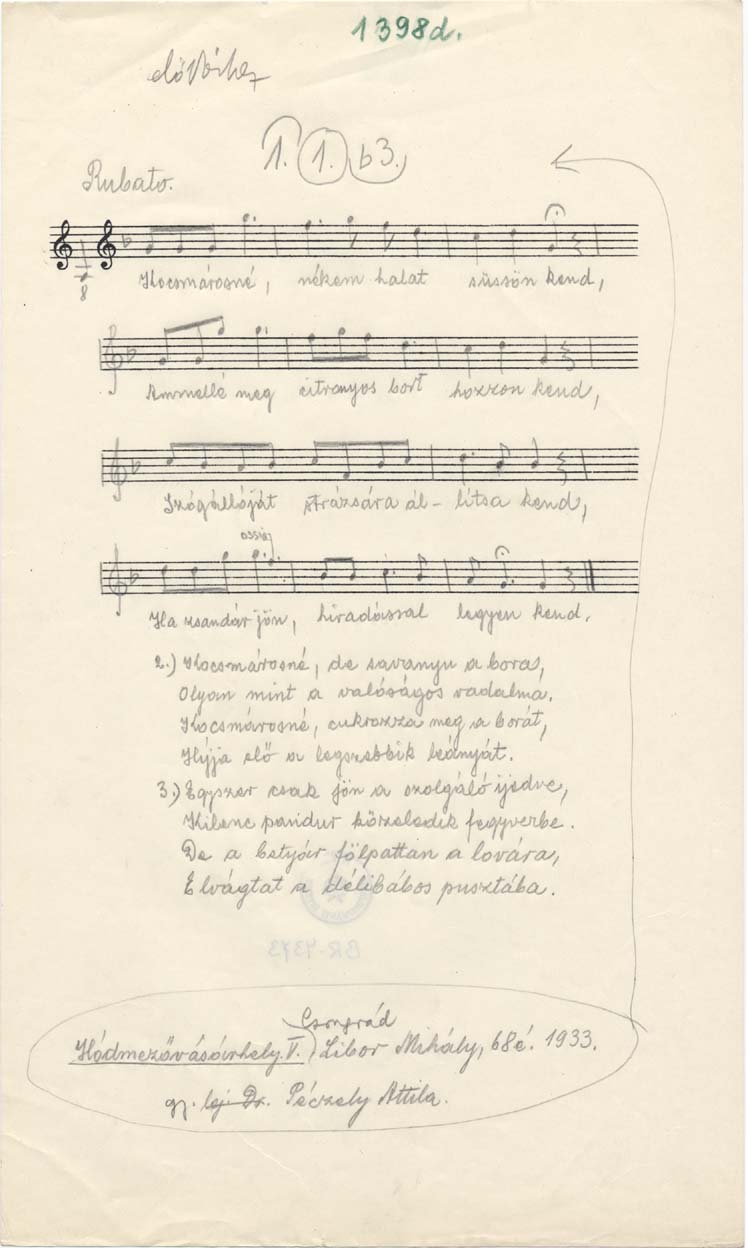 1398d.
1. 1. b3.
Rubato.
8
Kocsmárosné, nékem halat süssön kend,
Ammellé meg citronyos bort hozzon kend,
Szógállóját strázsára ál- lítsa kend,
ossia
Ha zsandár jön, hiradással legyen kend.
2.) Kocsmárosné, de savanyu a bora,
Olyan mint a valóságos vadalma.
Kocsmárosné, cukrozza meg a borát,
Hijja elő a legszebbik leányát.
3.) Egyszer csak jön a szolgáló ijedve,
Kilenc pandur közeledik fegyverbe.
De a betyár fölpattan a lovára,
Elvágtat a délibábos pusztába.
BR-7373
Csongrád
Hódmezővásárhely. V. Libor Mihály, 68é. 1933.
gy. lej. Dr. Péczely Attila.